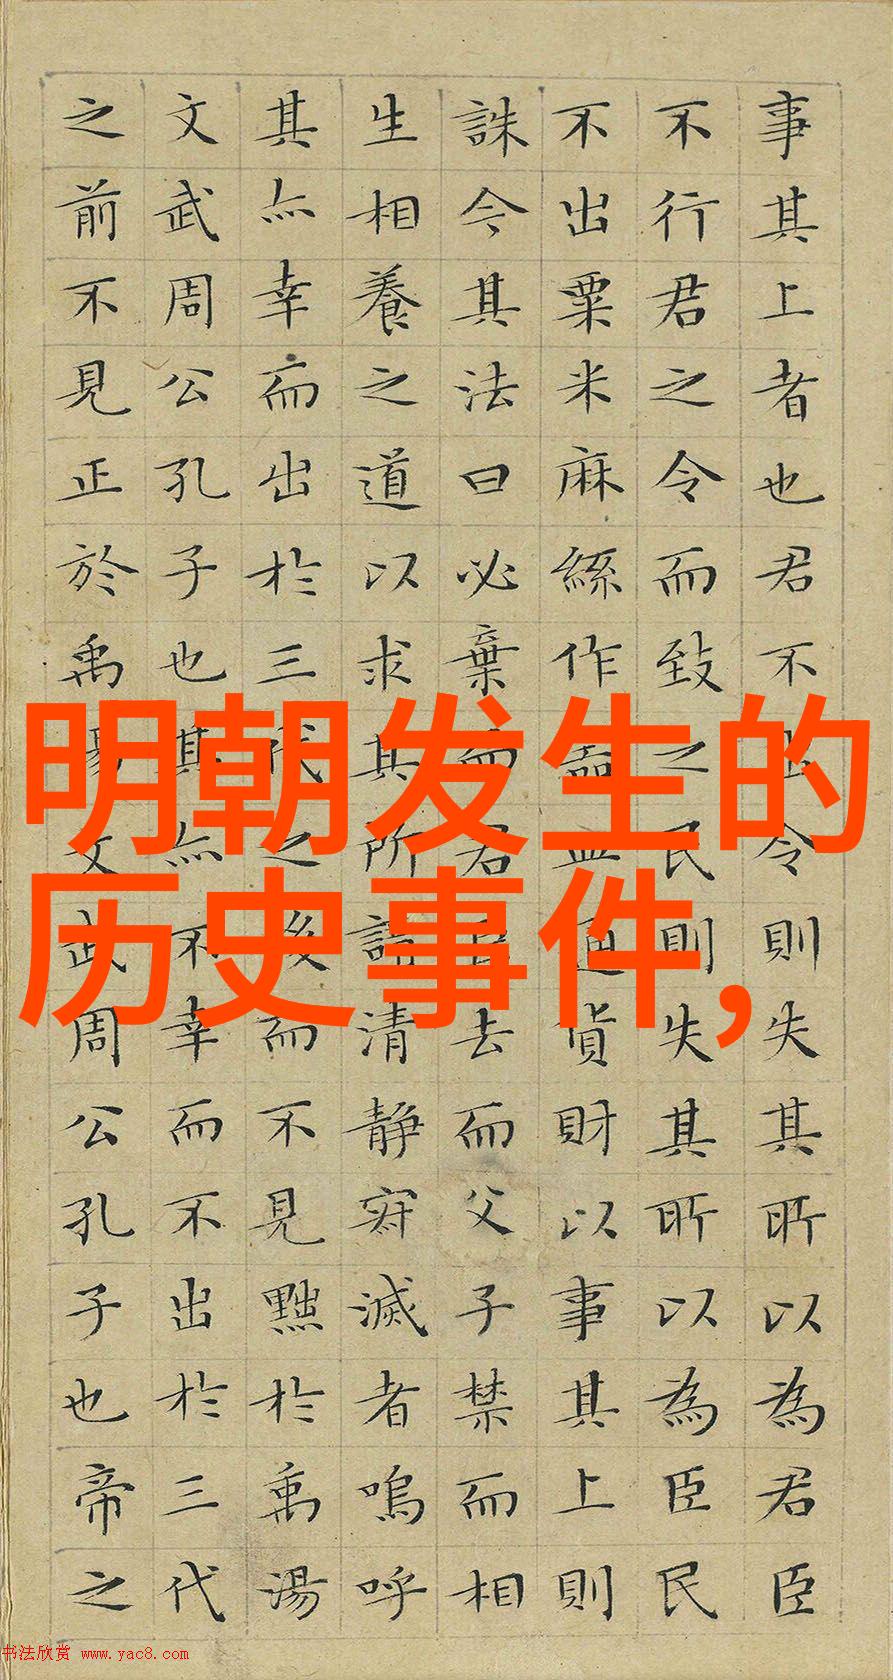 事其上者也君不出令則失其所以為君臣
不行君之令而致之民則失其所以為臣民
不出粟米麻絲作器皿通貨財以事其上則
誅今其法曰必棄而君臣去而父子禁而相
生相養之道以求其所謂清静寂滅者嗚呼
其亦幸而出於三代之後而不見黜於禹湯
文武周公孔子也其亦不幸而不出於三代
之前不見正於禹湯文武周公孔子也帝之
明朝发生的
历史事件,
书法欣赏 www.yac8.com